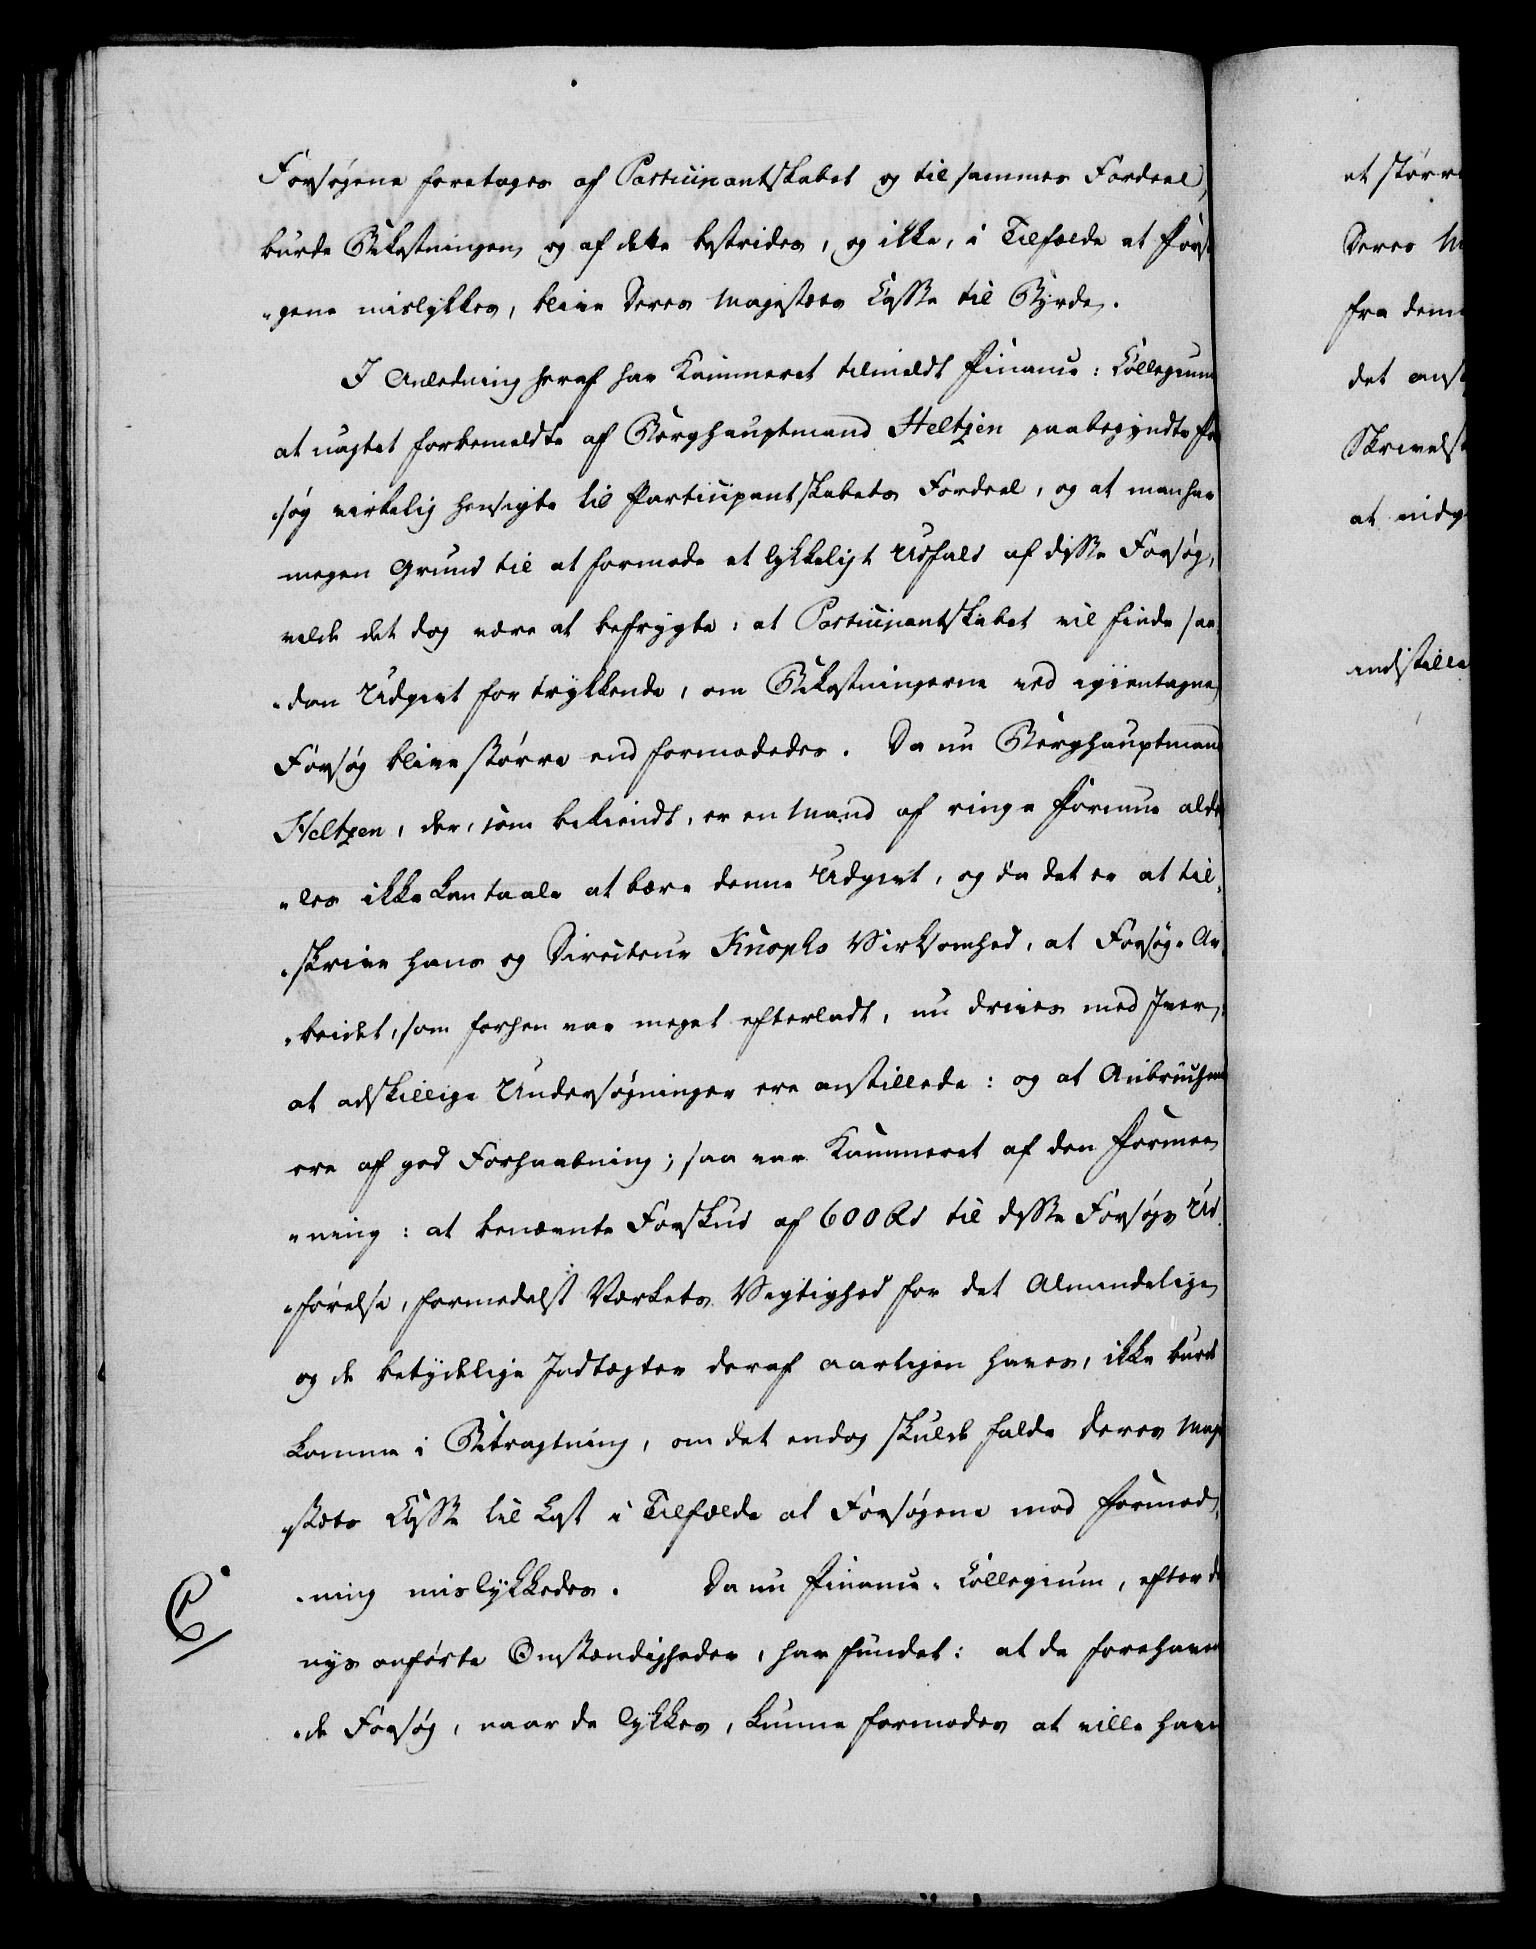 Forsøgene foretages af Participantskabet og til sammes Fordeel,
burde Bekostningen og af dette bestrides, og ikke, i Tilfælde at Forsø
"gene mislykkes, blive Deres Majestæts Casse til Byrde.
I Anledning heraf har Kammeret tilmeldt Finance: Collegium
at uagtet forbemeldte af Berghauptmand Heltzen paabegyndte For
"søg virkelig hensigte til Participantskabets Fordeel, og at man har
megen Grund til at formode et lykkeligt Udfald af disse Forsøg,
vilde det dog være at befrygte: at Participantskabet vil finde saa
"dan Udgivt for trykkende, om Bekostningerne ved igientagne
Forsøg blive større end formodedes. Da nu Berghauptmand
Heltzen, der, som bekiendt, er en Mand af ringe Formue alde
"les ikke kan taale at bære denne Udgivt, og da det er at til,
"skrive hans og Directeur Knophs Virksomhed, at Forsøg-Ar,
"beidet, som forhen var meget efterladt, nu drives med Iver,
at adskillige Undersøgninger ere anstillede: og at Anbruchene
ere af god Forhaabning; saa var Kammeret af den Formee
"ning: at benævnte Forskud af 600 Rd til disse Forsøgs Ud
"førelse, formedelst Værkets Vigtighed for det Almindelige
og de betydelige Indtægter deraf aarligen haves, ikke burde
komme i Betragtning, om det endog skulde falde Deres Maje
"stæts Casse til Last i Tilfælde at Forsøgene mod Formod,
"ning mislykkedes. Da nu Finance-Collegium, efter de
nys anførte Omstændigheder, har fundet: at de forehaven
"de Forsøg, naar de lykkes, kunne formodes at ville have
et større
Deres M
fra dem
det ans
Skrivels
at
indstille